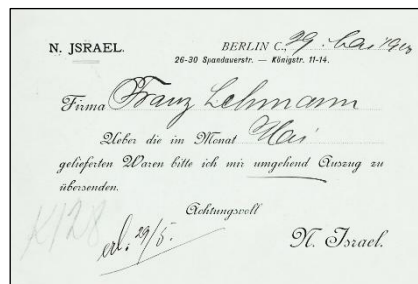 N. JSRAEL.
BERLIN C., 29. Mai
26-30 Spandauerstr. — Königstr. 11-14.
Firma Franz Lehmann
Ueber die im Monat Mai
gelieferten Waren bitte ich mir umgehend Auszug zu
übersenden.
Achtungsvoll
K128
erl. 29/5.
N. Israel.